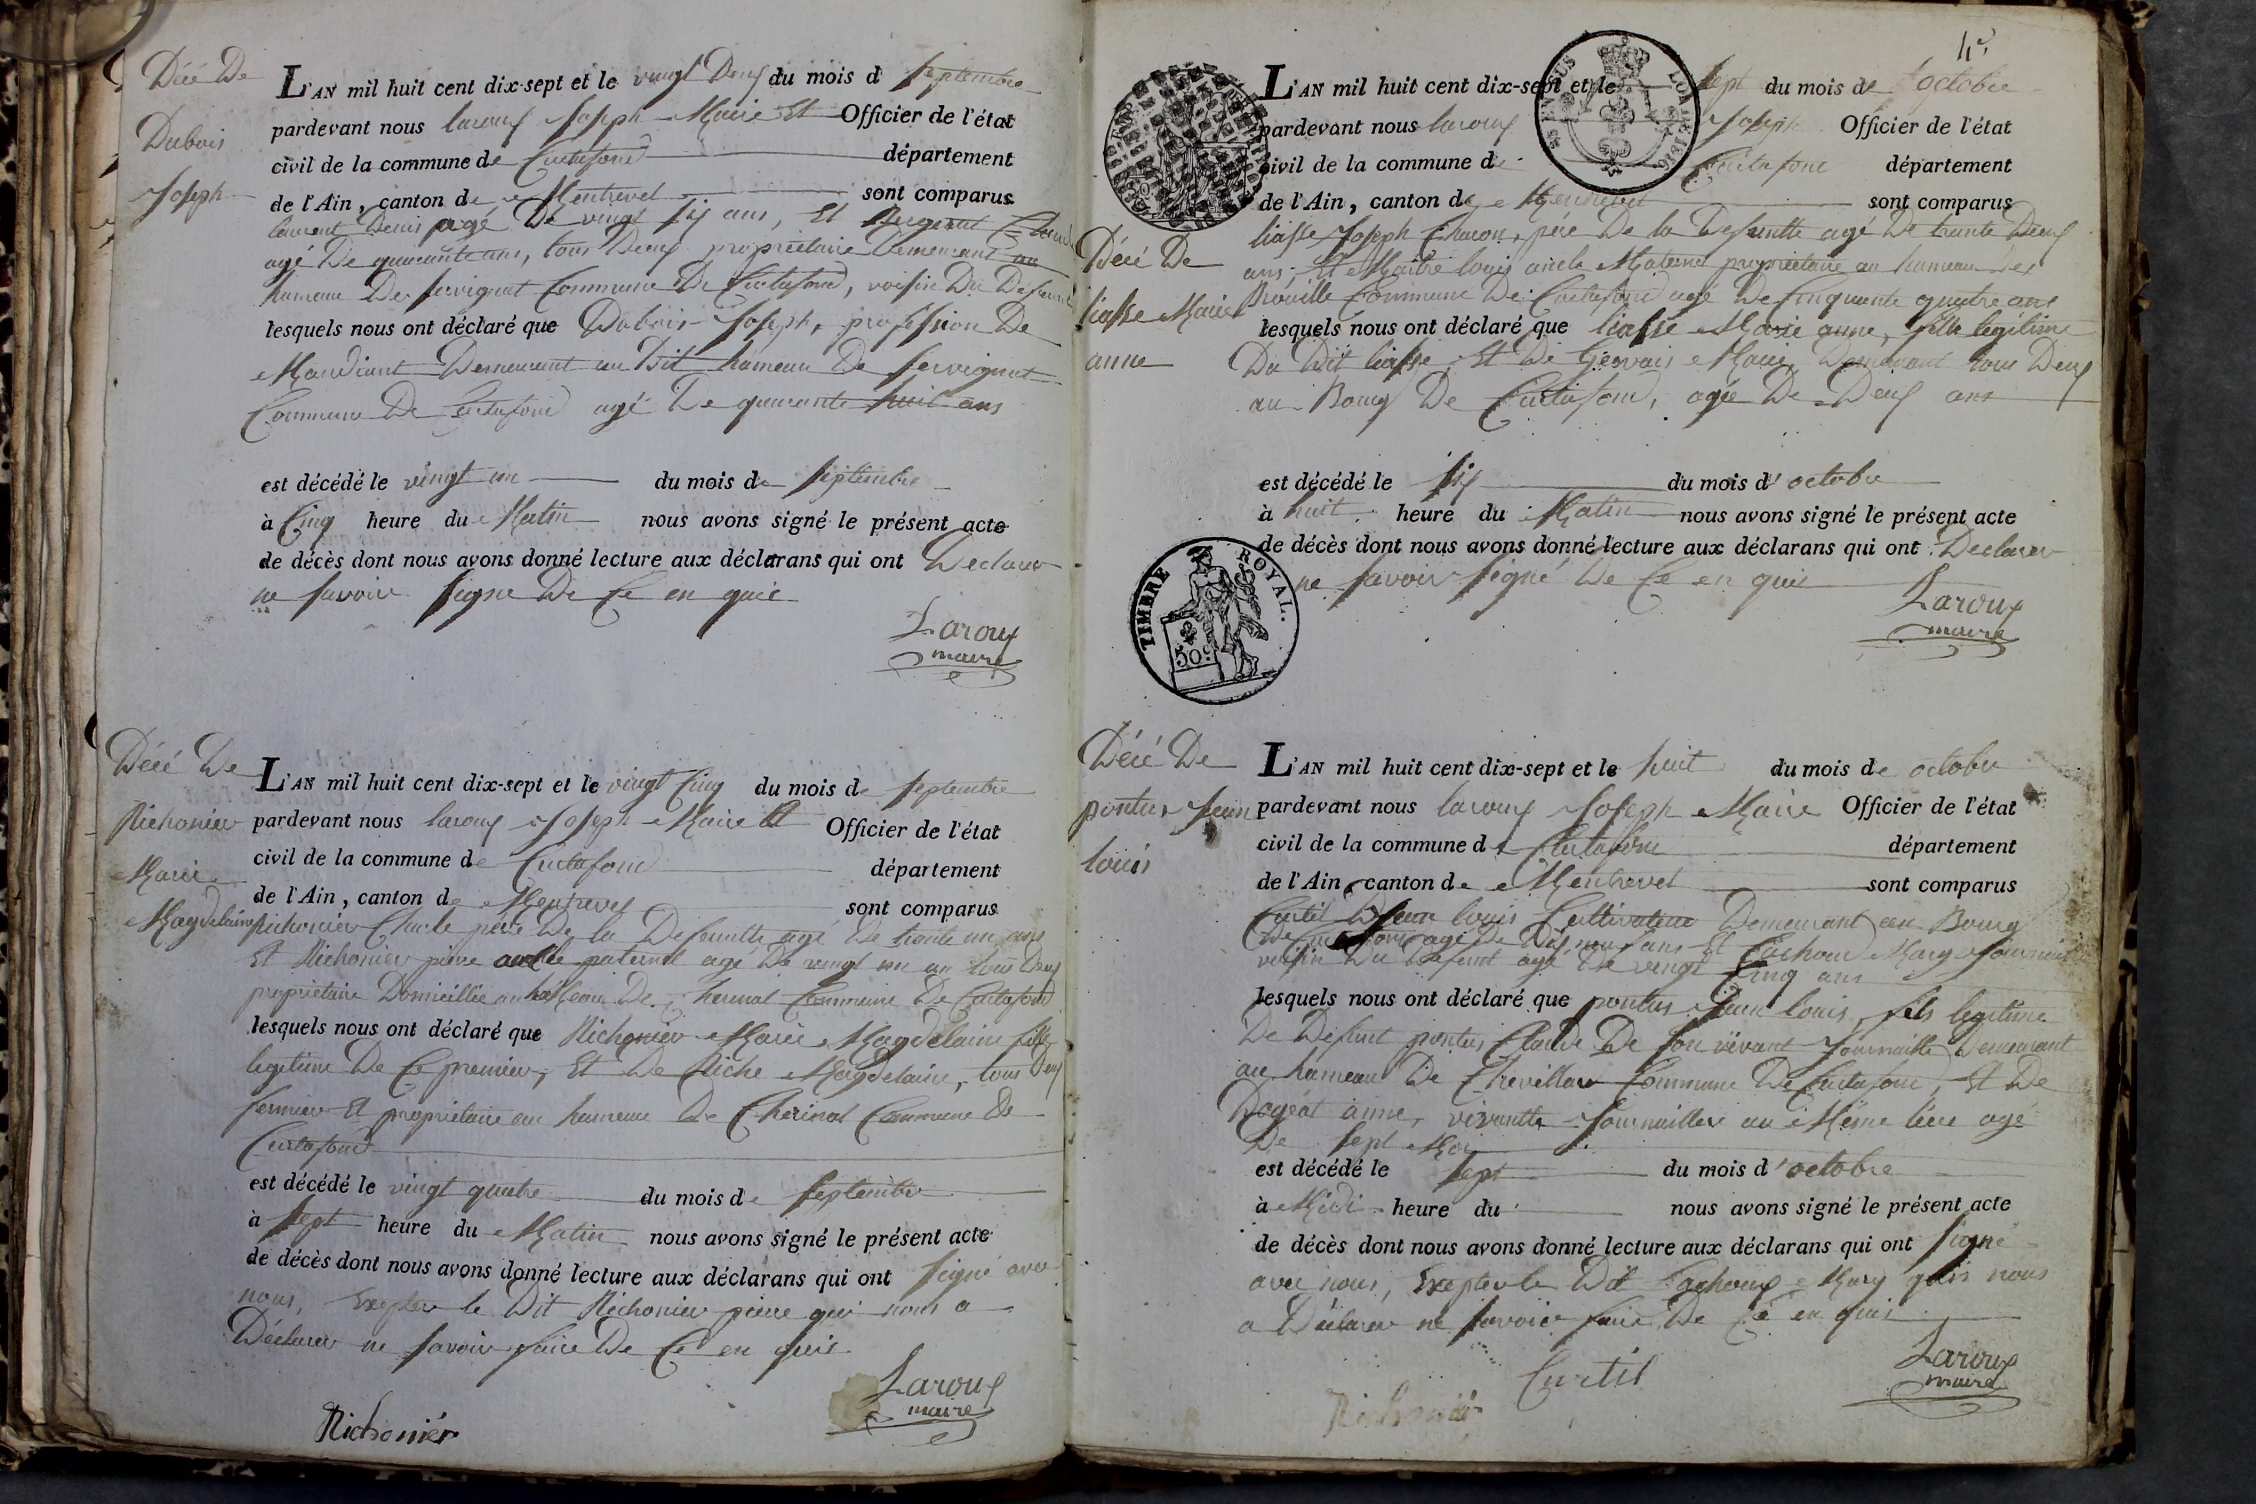 Décé De
Dubois
Joseph
L'AN mil huit cent dix-sept et le vingt Deux du mois d Septembre
pardevant nous laroux Joseph Maire Et Officier de l'état
civil de la commune de Curtafond département
de l'Ain, canton de Montrevel sont comparus
laurent Denis agé De vingt six ans, Et
agé De quarante ans, tous Deux propriétaire Demeurant au
hameau De servignat Commune De Curtafond, voisin Du Defunt
lesquels nous ont déclaré que Dubois Joseph, profession De
Mandiant Demeurant au Dit hameau De servignat
Commune De Curtafond agé De quarante huit ans
est décédé le vingt un du mois de septembre
à Cinq heure du Matin nous avons signé le présent acte
de décès dont nous avons donné lecture aux déclarans qui ont Declarer
ne savoir signe De Ce en quis
Laroux
maire
Décé De
Richonier
Marie
Magdelaine
L'AN mil huit cent dix-sept et le vingt Cinq du mois de septembre
pardevant nous laroux Joseph Maire Et Officier de l'état
civil de la commune de Curtafond département
de l'Ain, canton de Montrevel sont comparus
Richonier Charle père De la Defuntte agé De trente un ans
Et Richonier piere oncle paternel agé De vingt un an tous Deux
propriétaire Domicillié au hameau De Cherinal Commune De Curtafond
lesquels nous ont déclaré que Richonier Marie Magdelaine fille
legitime De Ce premier, Et De Riche Magdelaine, tous Deux
fermier Et propriétaire au hameau De Cherinal Commune De
Curtafond
est décédé le vingt quatre du mois de septembre
à sept heure du Matin nous avons signé le présent acte
de décès dont nous avons donné lecture aux déclarans qui ont signé avec
nous, Exepter le Dit Richonier piere qui nous a
Déclarer ne savoir faire De Ce en quis
Laroux
maire
Richonier
L'AN mil huit cent dix-sept et le sept du mois de octobre
pardevant nous laroux Joseph Officier de l'état
civil de la commune de Curtafond département
de l'Ain, canton de Montrevel sont comparus
Décé De
liasse Marie
anne
liasse Joseph père De la Defuntte agé De trente Deux
ans Et Maitre louis oncle Maternel propriétaire au hameau Des
Commune De Curtafond agé De Cinquante quatre ans
lesquels nous ont déclaré que liasse Marie anne, fille legitime
Du Dit liasse, Et De Gervais Marie Demeurant tous Deux
au Bourg De Curtafond, agée De Deux ans
est décédé le six du mois d' octobre
à huit heure du Matin nous avons signé le présent acte
de décès dont nous avons donné lecture aux déclarans qui ont Declarer
ne savoir signé De Ce en quis
TIMBRE ROYAL.
50c
Laroux
maire
Décé De
pontus Jean
louis
L'AN mil huit cent dix-sept et le huit du mois de octobre
pardevant nous laroux Joseph Maire Officier de l'état
civil de la commune de Curtafond département
de l'Ain, canton de Montrevel sont comparus
Curtil Jean louis Cultivateur Demeurant au Bourg
De Curtafond agé De Dix neuf ans Et Cachoux Mary Journaillier
voisin Du Defunt agé De vingt Cinq ans
lesquels nous ont déclaré que pontus Jean louis, fils legitime
De Defunt pontus Claude De son vivant Journaillé Demeurant
au hameau De Chevillard Commune De Curtafond, Et De
anne, vivantte Journaillier au Même lieu agé
De sept Moi
est décédé le sept du mois d' octobre
à Midi heure du nous avons signé le présent acte
de décès dont nous avons donné lecture aux déclarans qui ont signé
avec nous, Exepter le Dit Cachoux Mary quis nous
a Déclarer ne savoir faire De Ce en quis
Curtil
Laroux
maire